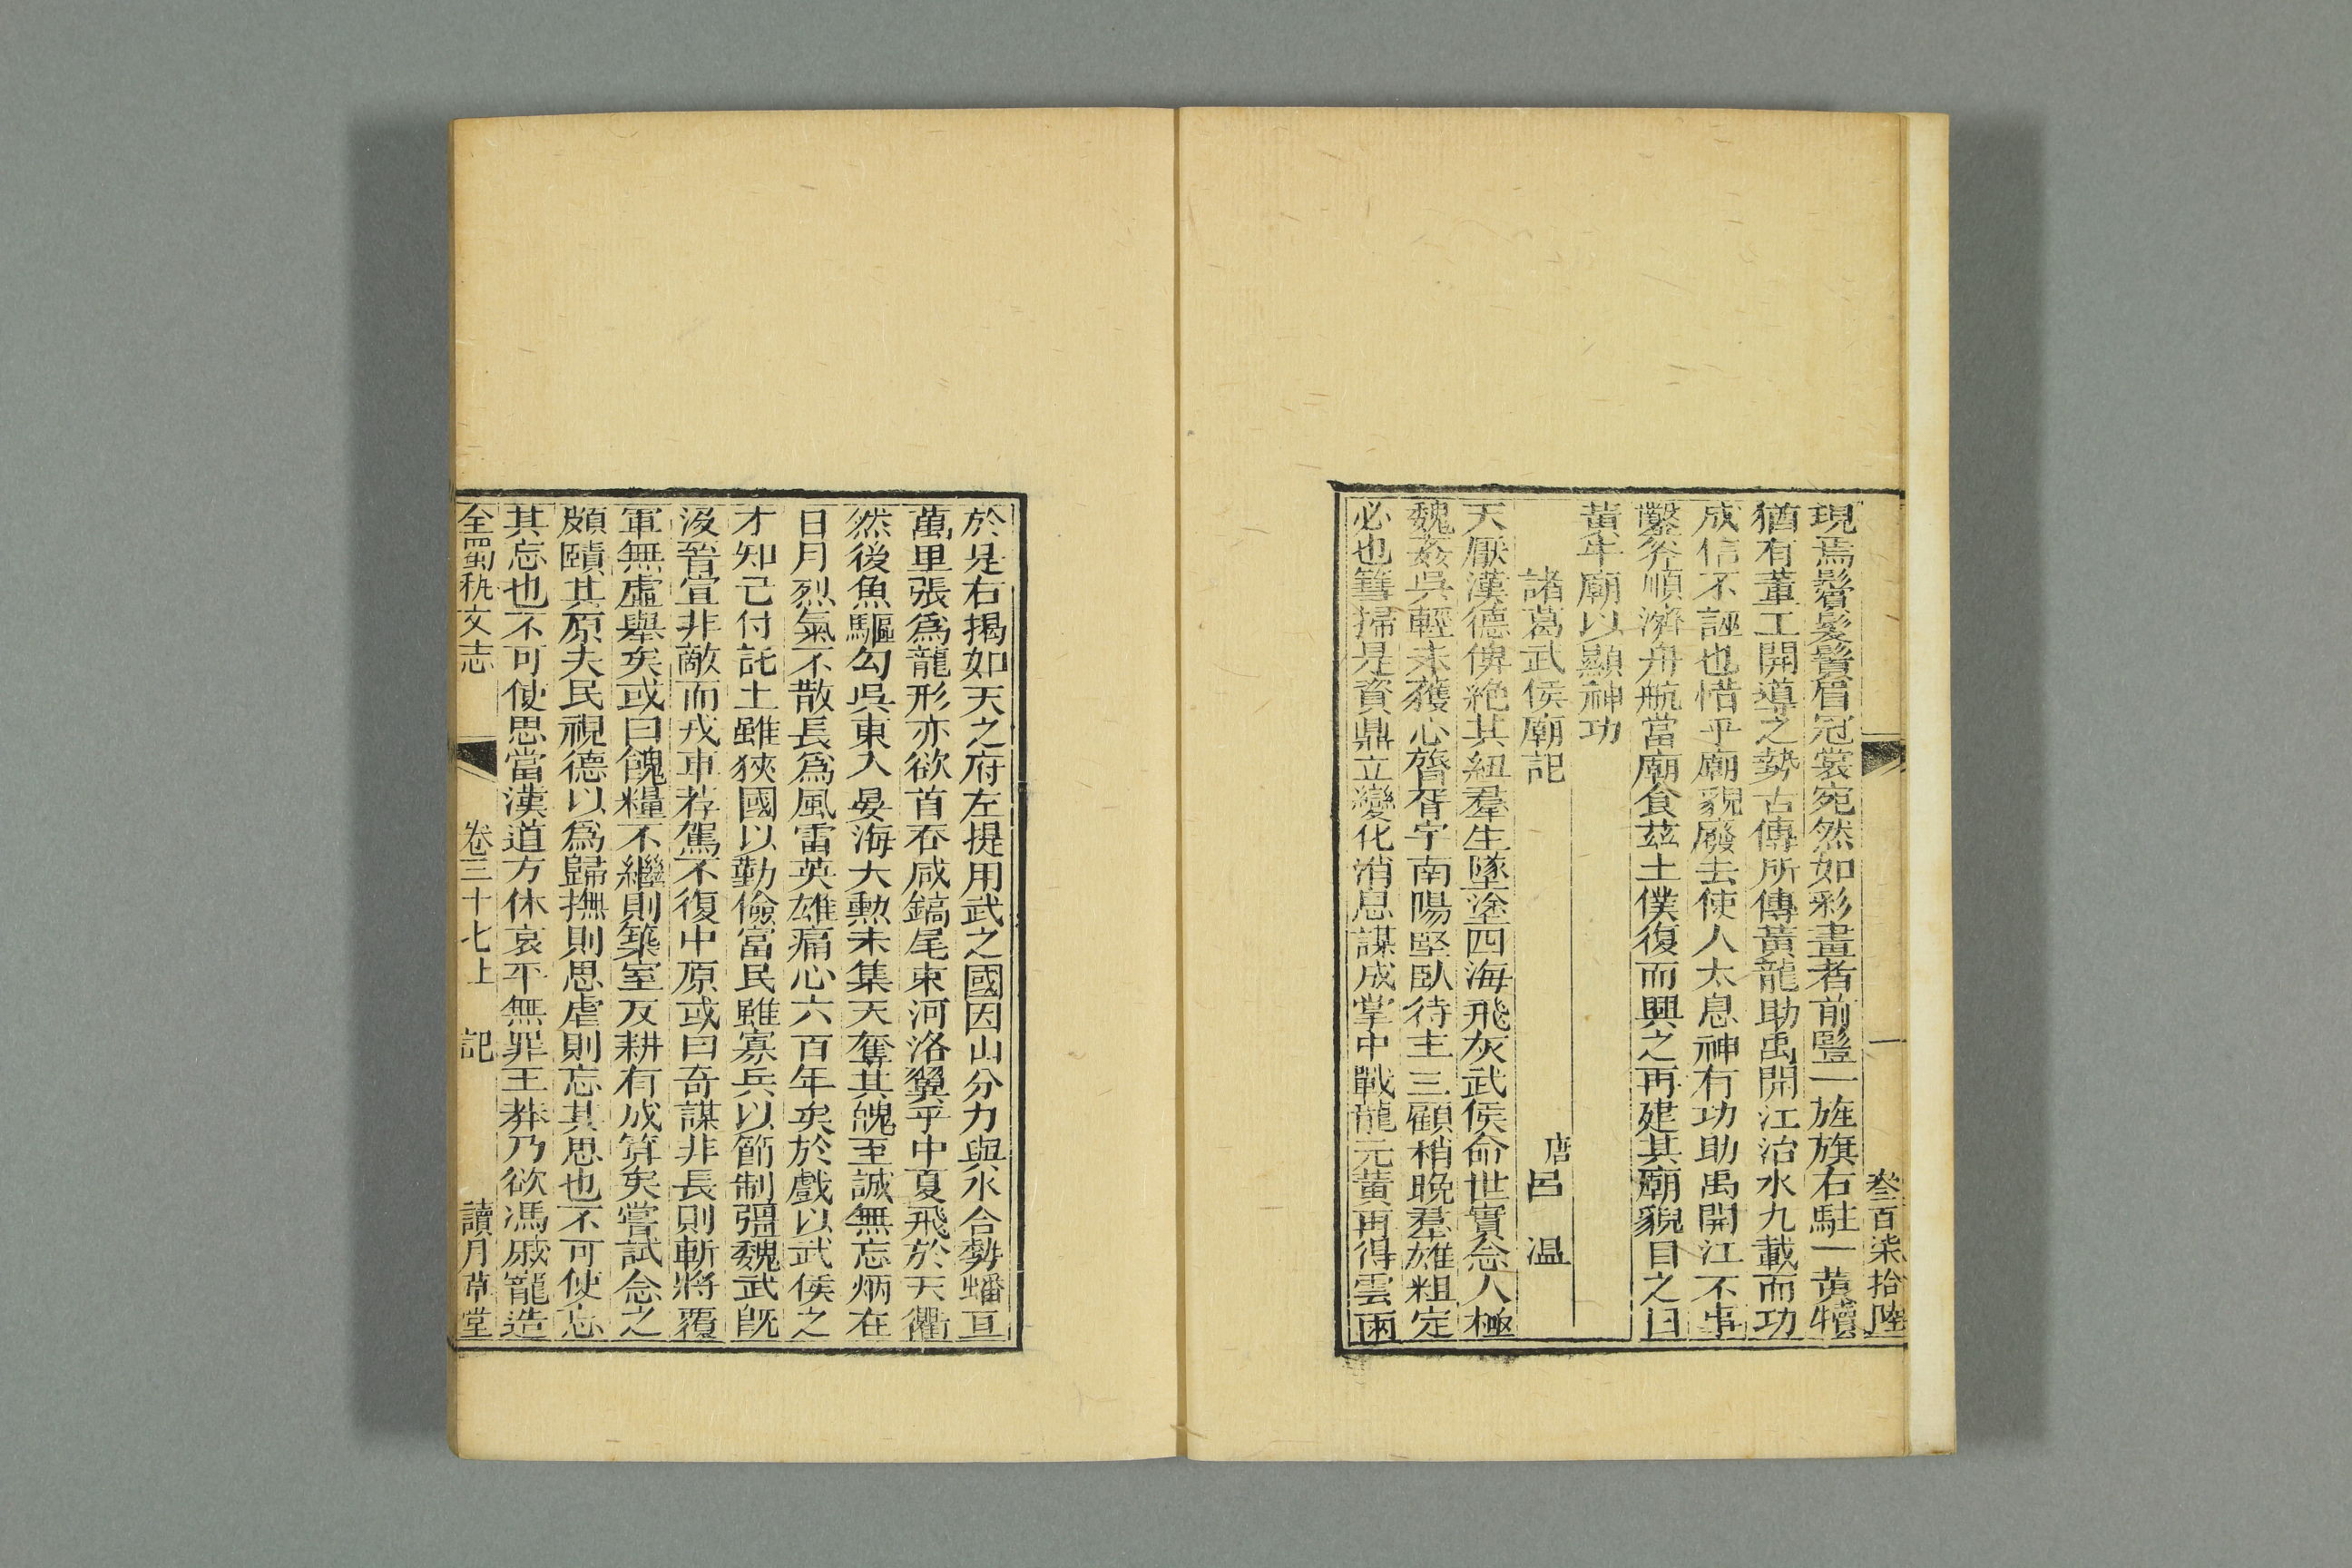 一　叁百柒拾陸
現焉鬚髮鬢眉冠裳宛然如彩畫者前豎一旌旗石駐一黃犢
猶有董工開導之勢古傳所傳黃龍助禹開江治水九載而功
成信不誣也惜乎廟貌廢去使人太息神有功助禹開江不事
鑿斧順濟舟航當廟食茲土僕復而興之再建其廟貌目之曰
黃牛廟以顯神功
諸葛武侯廟記　唐呂溫
天厭漢德俾絶其紐羣生墜塗四海飛灰武侯命世實念人極
魏姦吳輕未獲心膂胥宇南陽堅臥待主三顧稍晚羣雄粗定
必也篲掃是資鼎立變化消息謀成掌中戰龍元黃再得雲雨
於是右揭如天之府左提用武之國因山分力與水合勢蟠亘
萬里張為龍形亦欲首吞咸鎬尾束河洛翼乎中夏飛於天衢
然後魚驅勾吳東入晏海大勲未集天奪其魄至誠無忘炳在
日月烈氣不散長為風雷英雄痛心六百年矣於戲以武侯之
才知己付託土雖狹國以勤儉富民雖寡兵以節制彊魏武旣
沒晉宣非敵而戎車荐駕不復中原或曰奇謀非長則斬將覆
軍無虛舉矣或曰餽糧不繼則築室反耕有成筭矣嘗試念之
頗賾其原夫民視德以為歸撫則思虐則忘其思也不可使忘
其忘也不可使思當漢道方休哀平無罪王莽乃欲馮戚寵造
全蜀秇文志　卷三十七上　記　讀月草堂